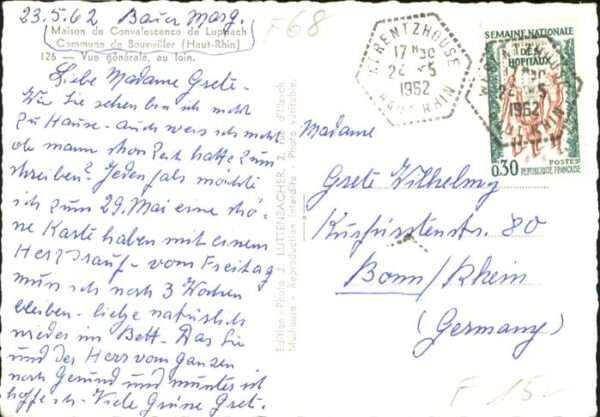 23.5.62 Bauer Marg.
F68
Maison de Convalescence de Luppach
Commune de Bouxwiller (Haut-Rhin)
126 — Vue générale, au loin.
Liebe Madame Grete -
Wie Sie sehen bin ich nicht
zu Hause - auch weis ich nicht
ob man schon Zeit hatte zum
schreiben? Jedenfals möchte
ich zum 29. Mai eine schö-
ne Karte haben mit einem
Herz drauf - vom Freitag
mus ich noch 3 Wochen
bleiben - liege natürlich
wieder im Bett - Das Sie
und der Herr vom ganzen
noch Gesund und munter ist
hoffe ich. Viele Grüse Gret-
Edition - Photo J. LUTTENBACHER, 2,
Mulhouse - Reproduction interdite - Photo véritable.
HIRENTZHOUSE
17 H30
24 -5
1962
HAUT-RHIN
SEMAINE NATIONALE
DES
HOPITAUX
0,30 POSTES
REPUBLIQUE FRANÇAISE
Madame
Grete Wilhelmy
Kurfürstenstr. 80
Bonn/Rhein
(Germany)
F 15-